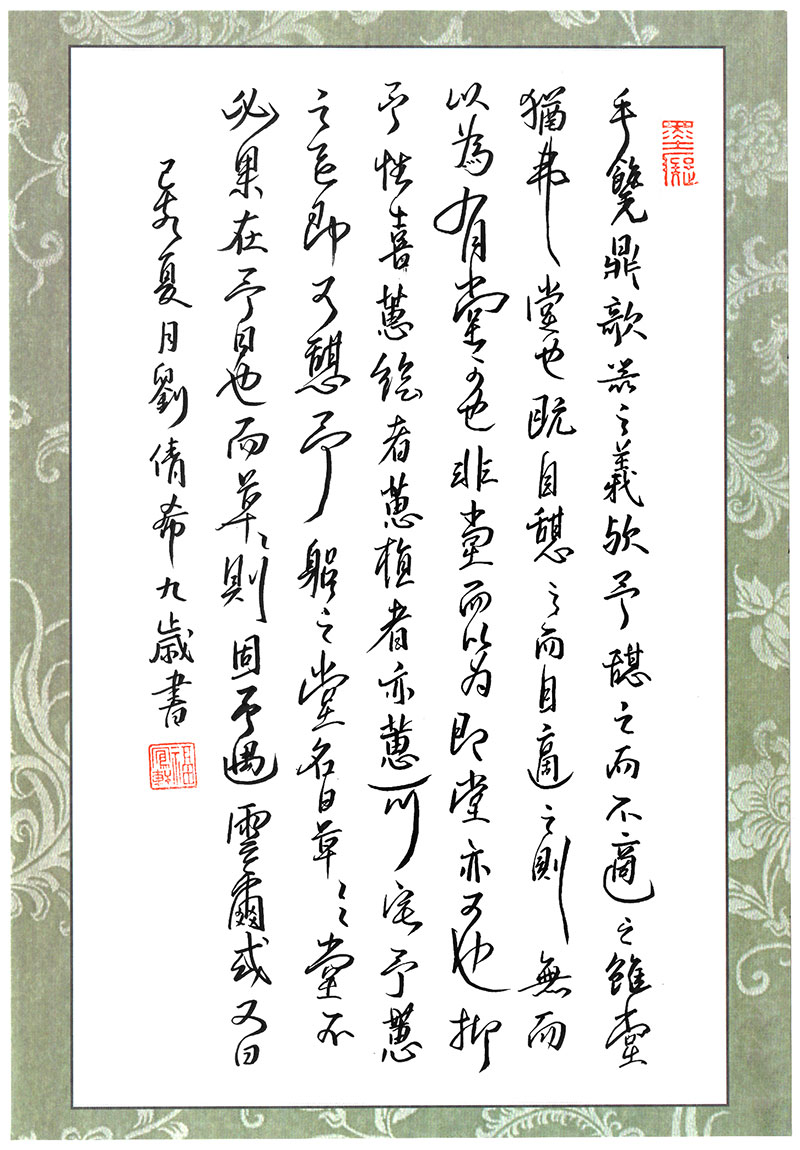 墨凝
手饶鼎歌器之義欤予憩之而不適之雖堂
猶弗堂也既自憩之而自適之則無而
以為有堂之也非堂而以为即堂亦可也抑
予性喜蕙绘者蕙植者亦蕙可以宅予蕙
之色即可憩予躬之堂名曰草々堂不
必果在予目也而草々則固予遇雲爾或又曰
己亥夏月劉倩希九歲書